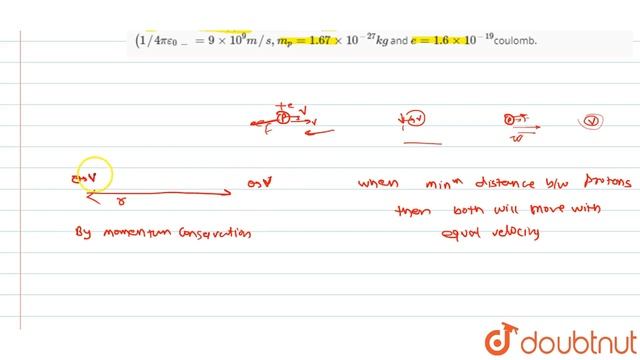 (1/4πε₀ ₋ = 9 × 10⁹m/s, mₚ = 1.67 × 10⁻²⁷kg and e = 1.6 × 10⁻¹⁹coulomb.
+e
P V
V
F
V
V
V
r
when minᵐ distance b/w Protons
then both will move with
equal velocity
By momentum conservation
doubtnut